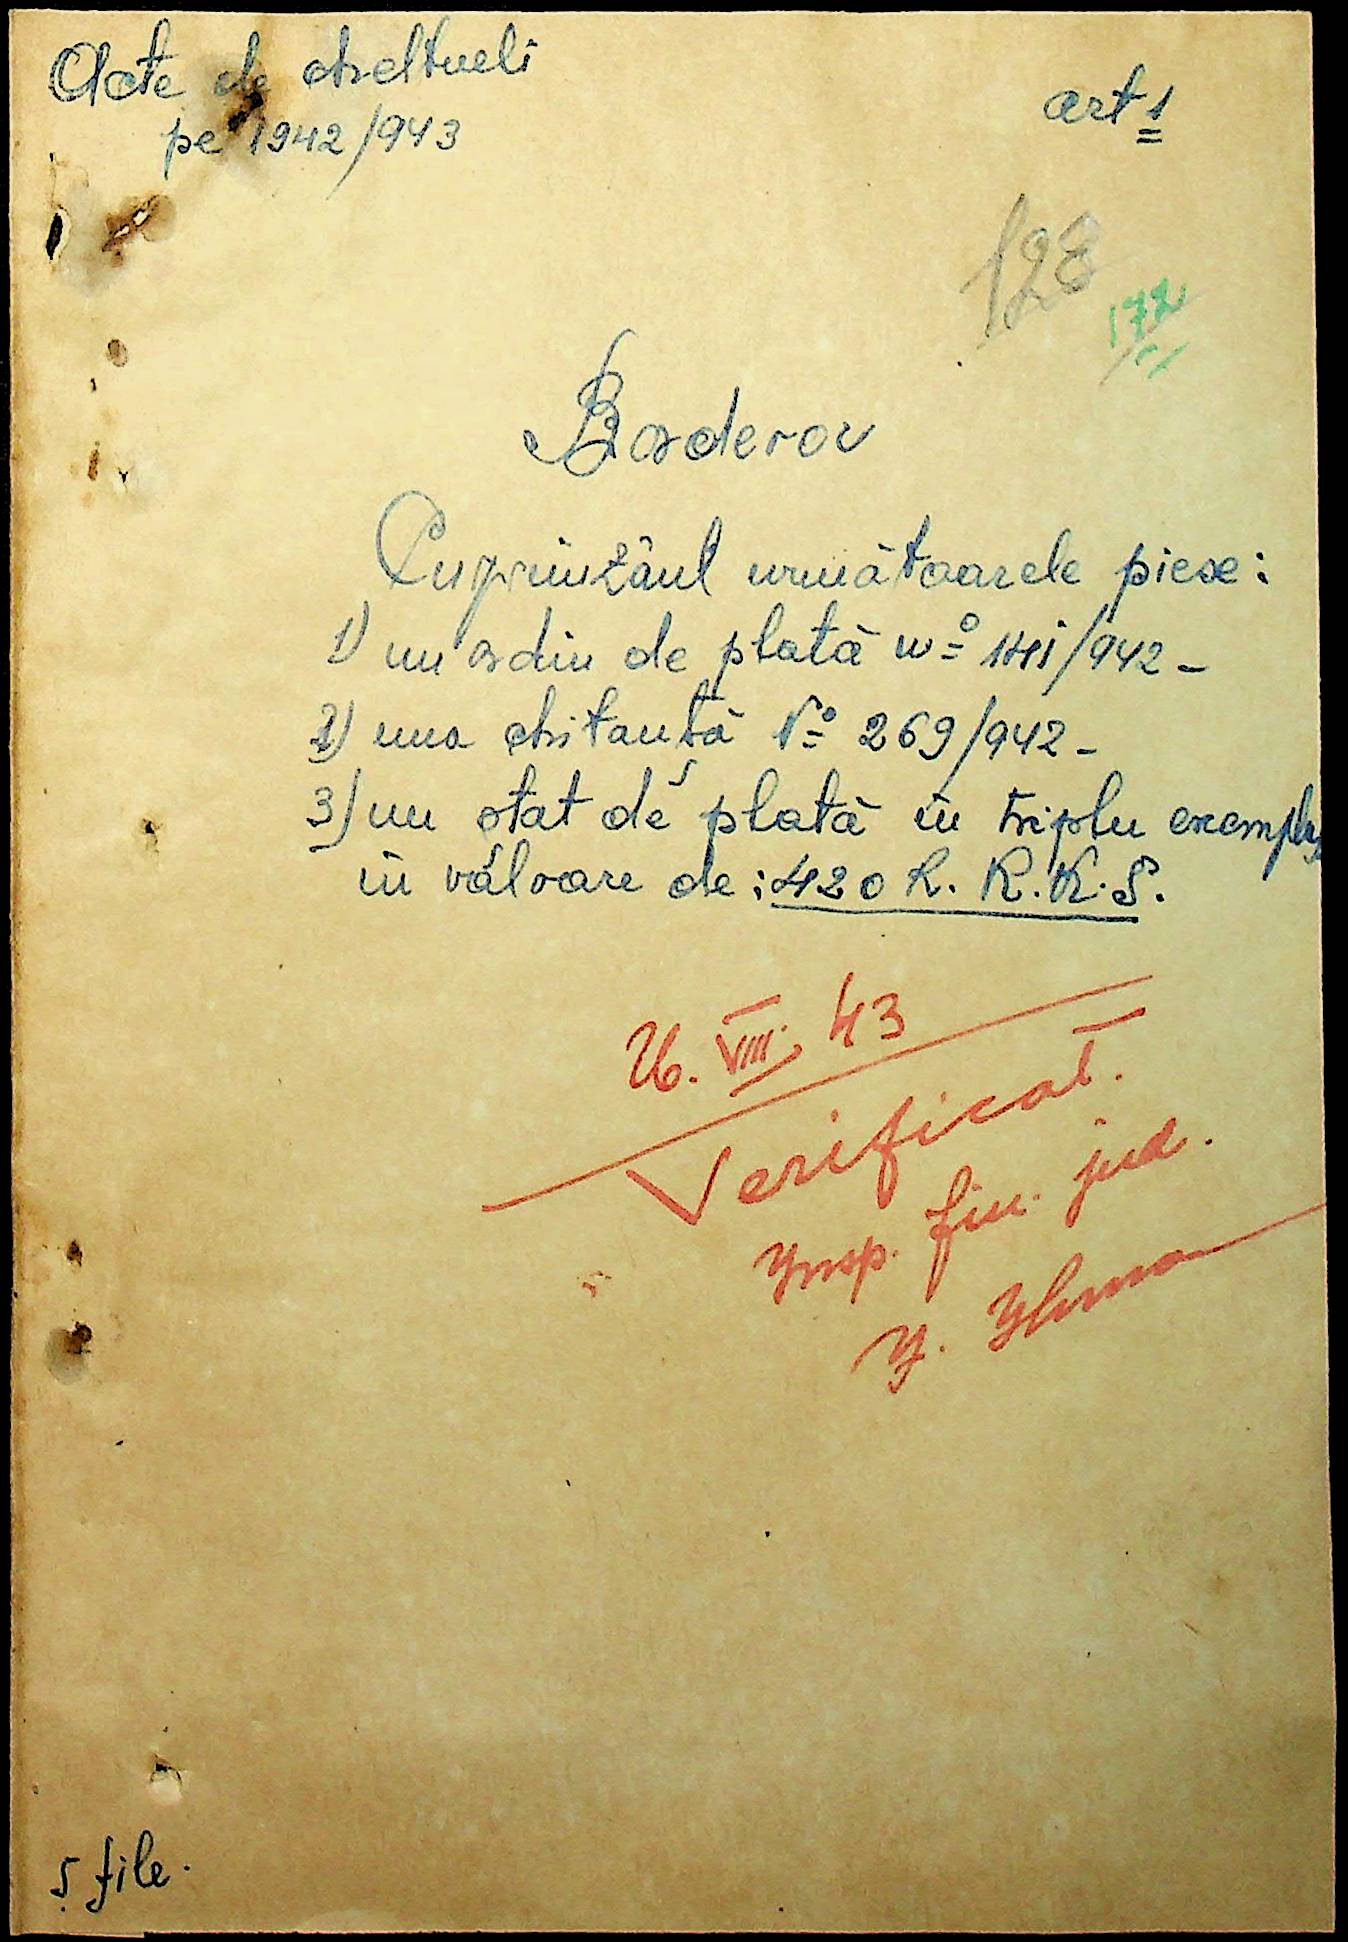 Acte de cheltueli
pe 1942/943
art 1
128
172
Borderou
Cuprinzând următoarele piese:
1) un ordin de plată No 141/942 -
2) una chitanță No 269/942 -
3) un stat de plată în triplu exemplar
în valoare de: 420 R. K. K. S.
26. VIII. 43
Verificat.
Insp. fin. jud.
5 file.